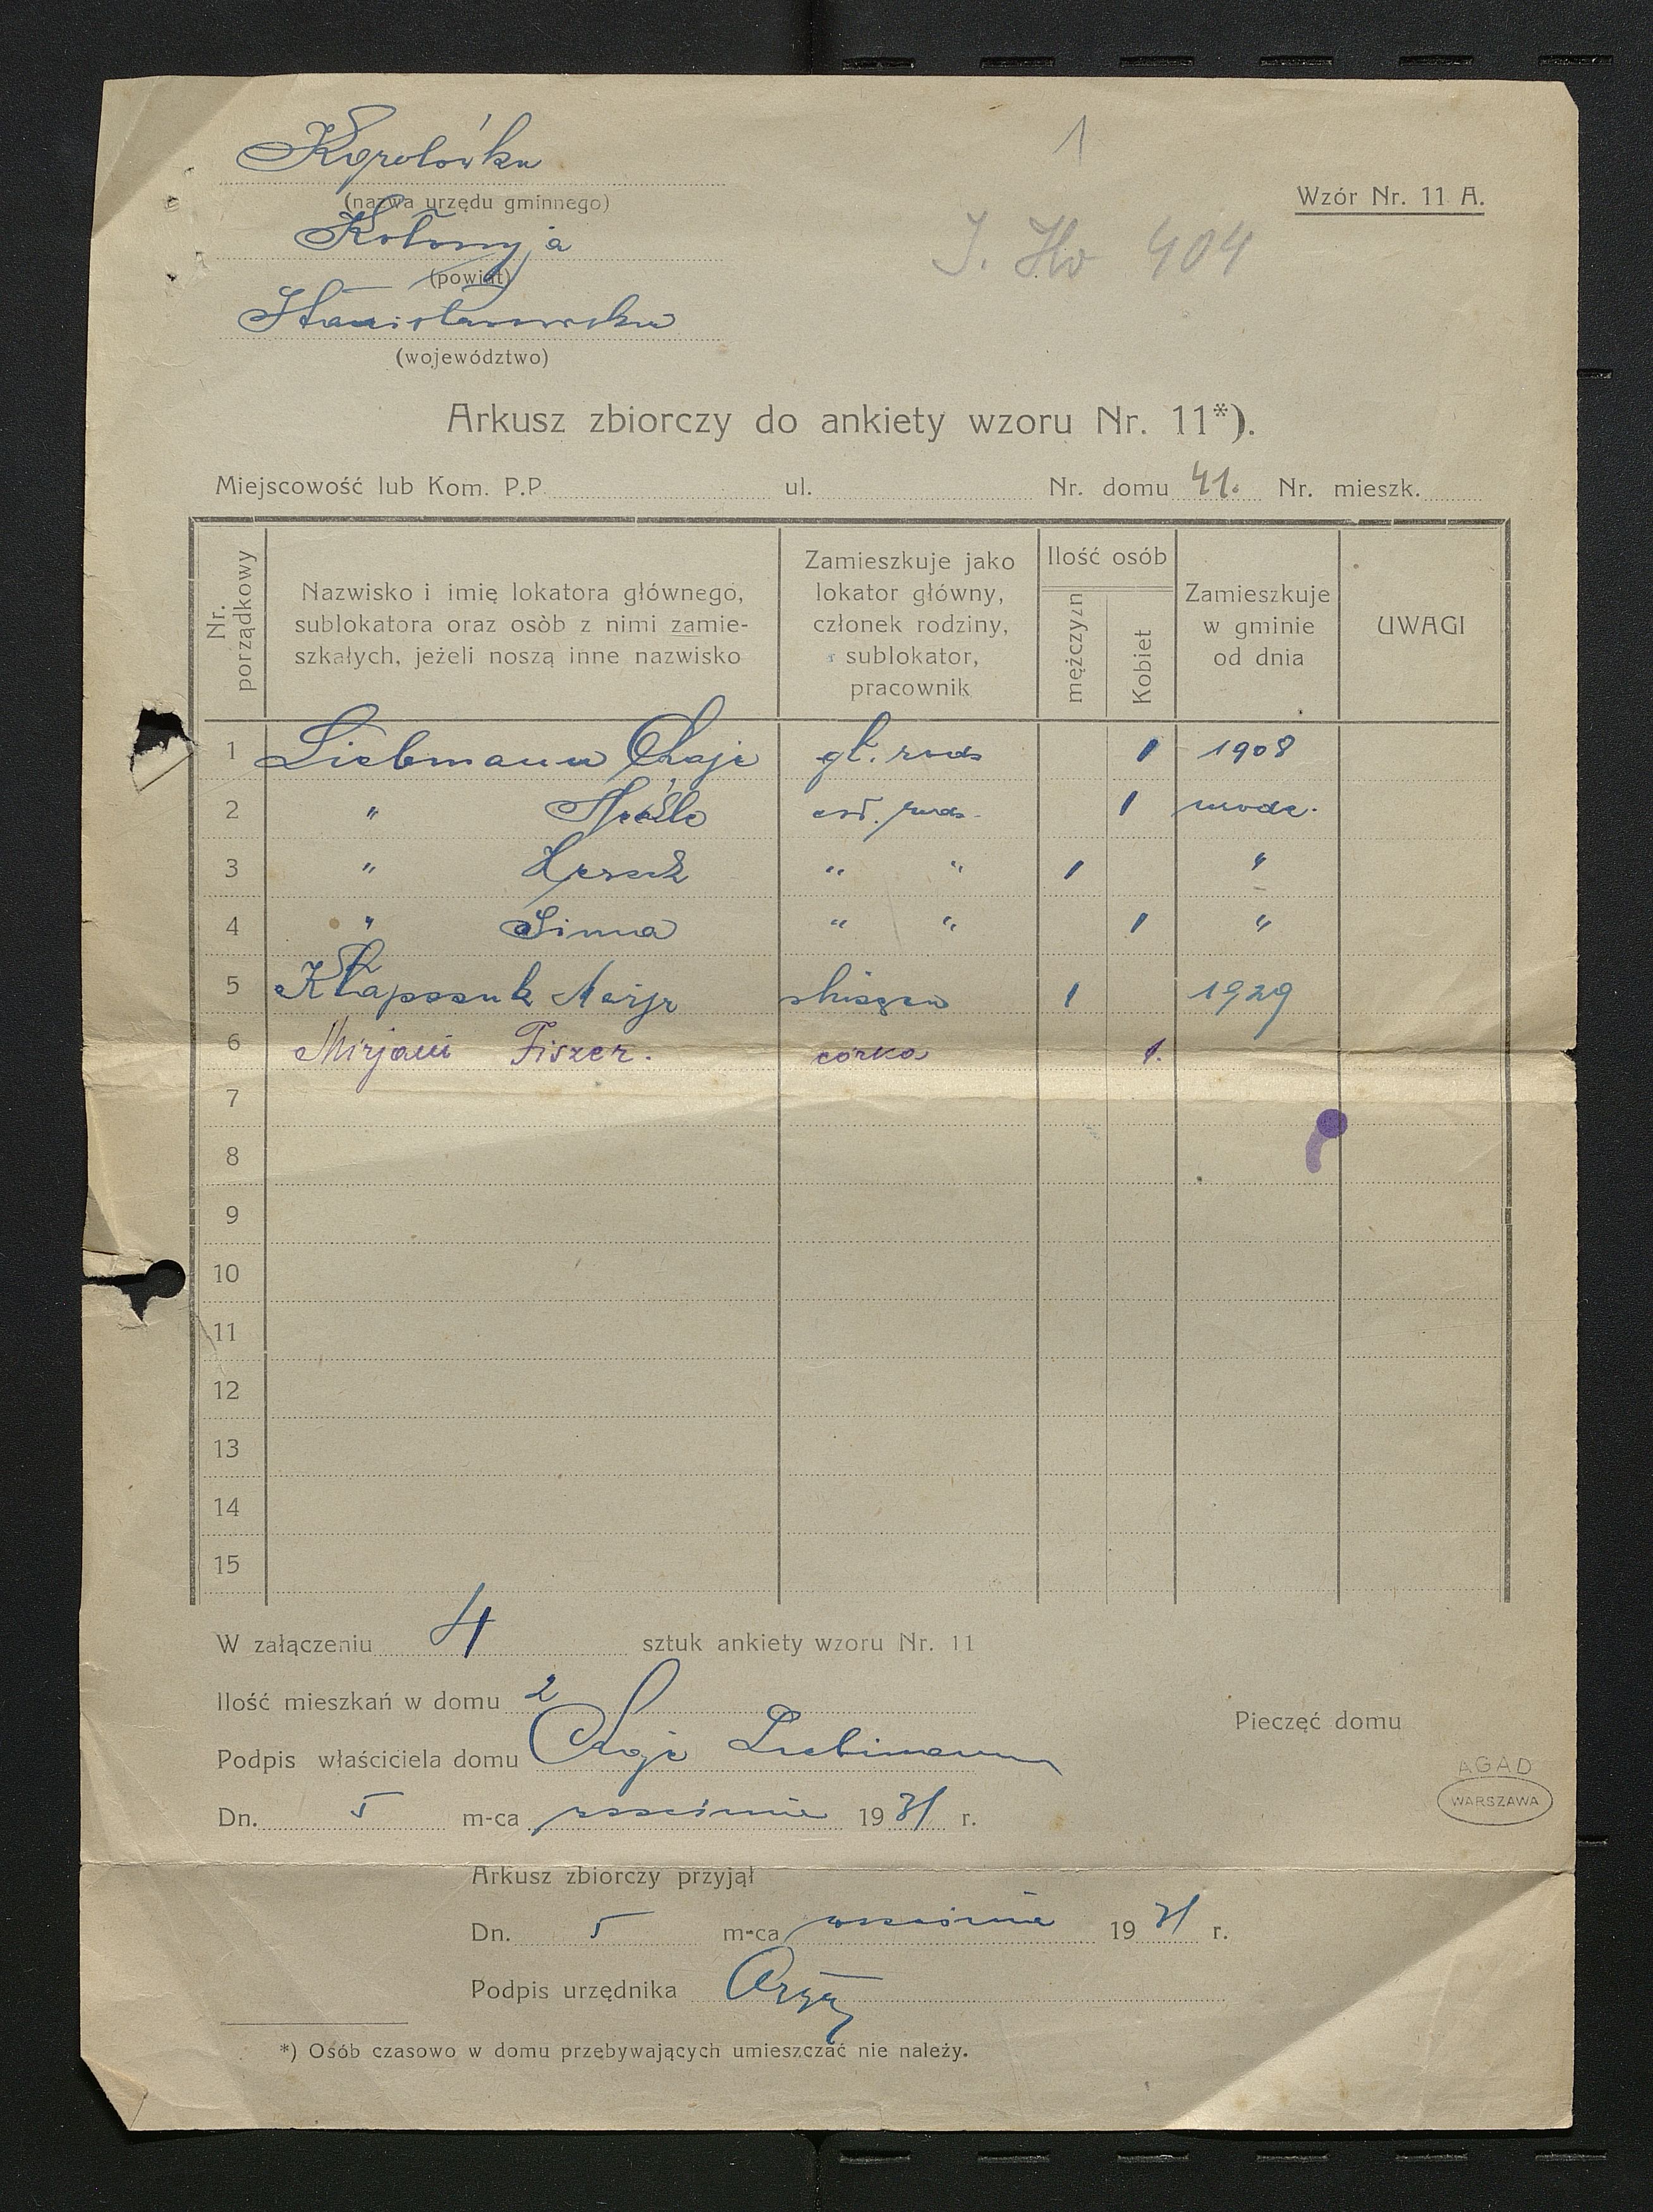 1
Wzór Nr. 11 A.
(nazwa urzędu gminnego)
Kołomyja
(powiat)
404
(województwo)
Arkusz zbiorczy do ankiety wzoru Nr. 11*).
Miejscowość lub Kom. P.P. ul. Nr. domu 41. Nr. mieszk.
Nr. porządkowy
Nazwisko i imię lokatora głównego,
sublokatora oraz osòb z nimi zamie-
szkałych, jeżeli noszą inne nazwisko
Zamieszkuje jako
lokator główny,
członek rodziny,
sublokator,
pracownik
Ilość osób
mężczyzn
Kobiet
Zamieszkuje
w gminie
od dnia
UWAGI
1 Liebmann Chaje gł. 1 1908
2 " 1
3 " Hersch " " 1 "
4 " " " 1 "
5 1 1929
6 Mirjam Fiszer. córka 1.
7
8
9
10
11
12
13
14
15
W załączeniu 4 sztuk ankiety wzoru Nr. 11
Ilość mieszkań w domu 2
Pieczęć domu
Podpis właściciela domu Chaje Liebmann
AGAD
WARSZAWA
Dn. 5 m-ca 1931 r.
Arkusz zbiorczy przyjął
Dn. 5 m-ca 1931 r.
Podpis urzędnika
*) Osób czasowo w domu przebywających umieszczać nie należy.